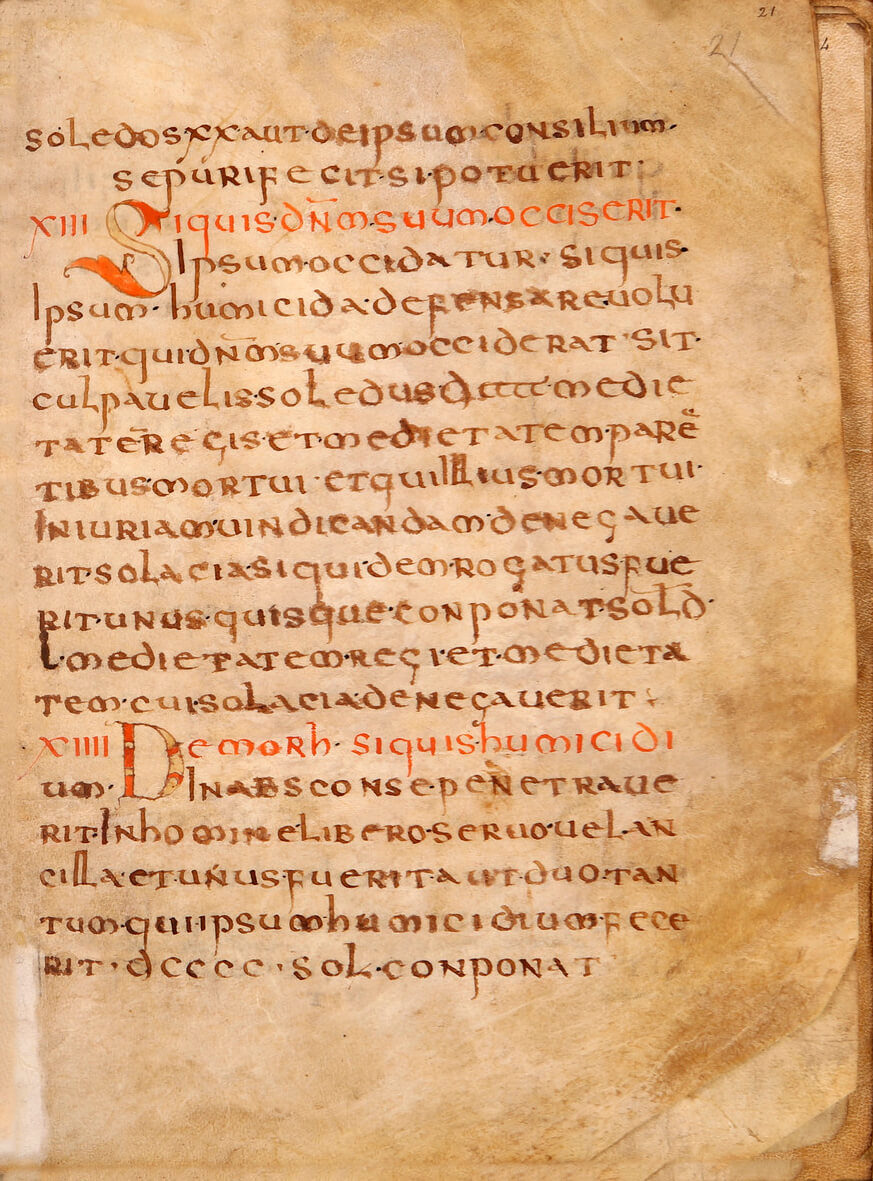 21
21
4
soledos xx aut de ipsum consilium·
se purifecit·si potuerit·
XIII Si quis·dn̄m·suum·occiserit·
Ipsum·occidatur·si quis·
Ipsum·humicida·defensare·uolu
erit·qui dn̄m suum occiderat·sit·
culpauelis·soledus dcccc medie
tatē Regis·et·medietatem parē
tibus·mortui·et qui illius·mortui·
Iniuriam·uindicandam·denegaue
rit·solacia·si quidem·rogatus fue
rit·unus·quisque·conponat·sold·
L·medietatem·regi·et·medieta
tem·cui·solacia·denegauerit
XIIII De morh·si quis·humicidi
um·In absconse·penetraue
rit·In homine libero·seruo·uel·an
cilla·et·unus·fuerit·aut·duo·tan
tum·qui ipsum humicidium·fece
rit·dcccc·sol·conponat